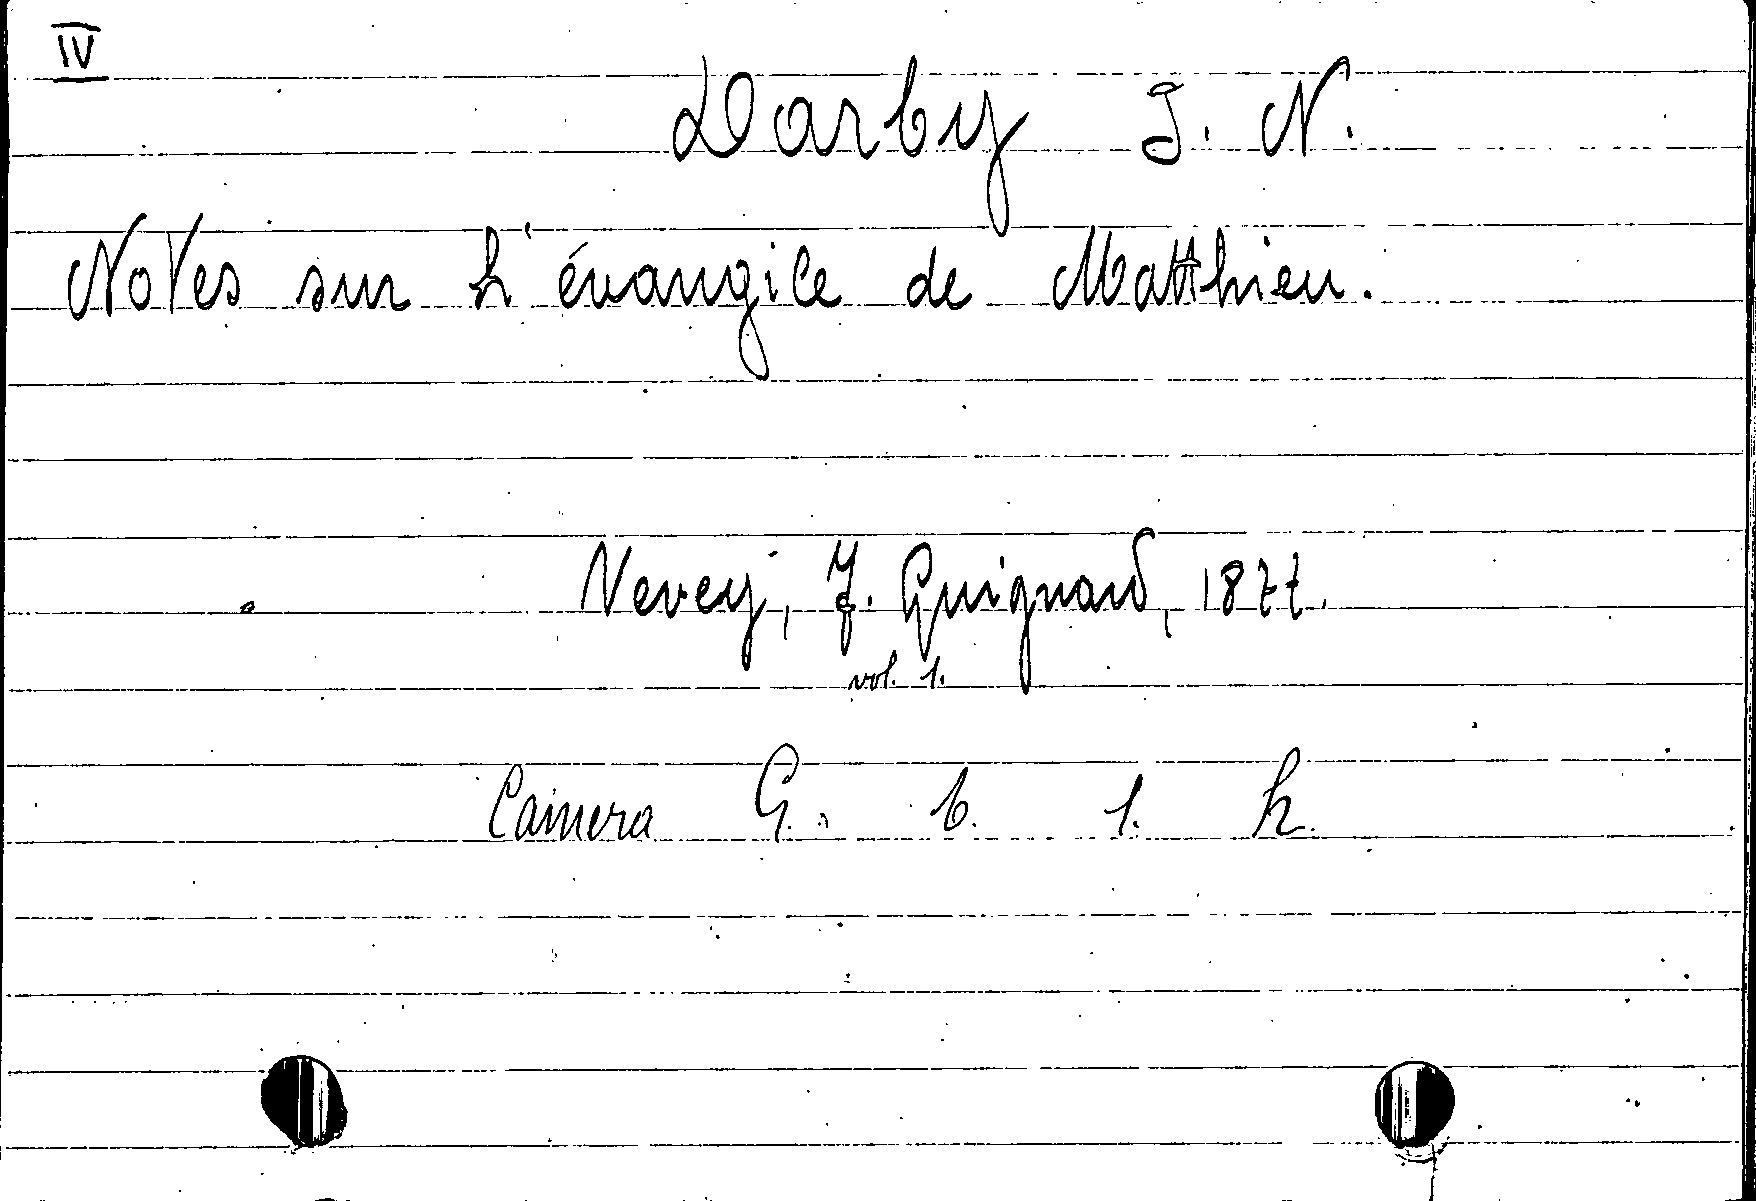 IV
Darby J. N.
Notes sur l'évangile de Matthieu.
Vevey, F. Guignard, 1877.
vol. 1.
Camera G. b. 1. h.